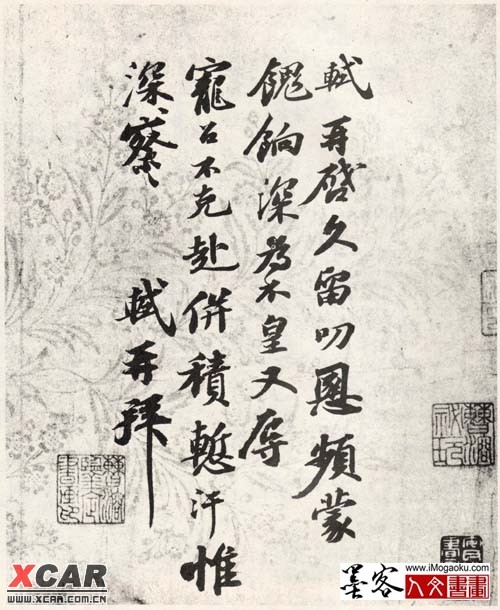 軾再啓久留叨恩頻蒙
餽餉深為不皇又辱
寵召不克赴併積慙汗惟
深〻察〻 軾再拜
XCAR
WWW.XCAR.COM.CN
www.iMogaoku.com
墨客 人文書畫